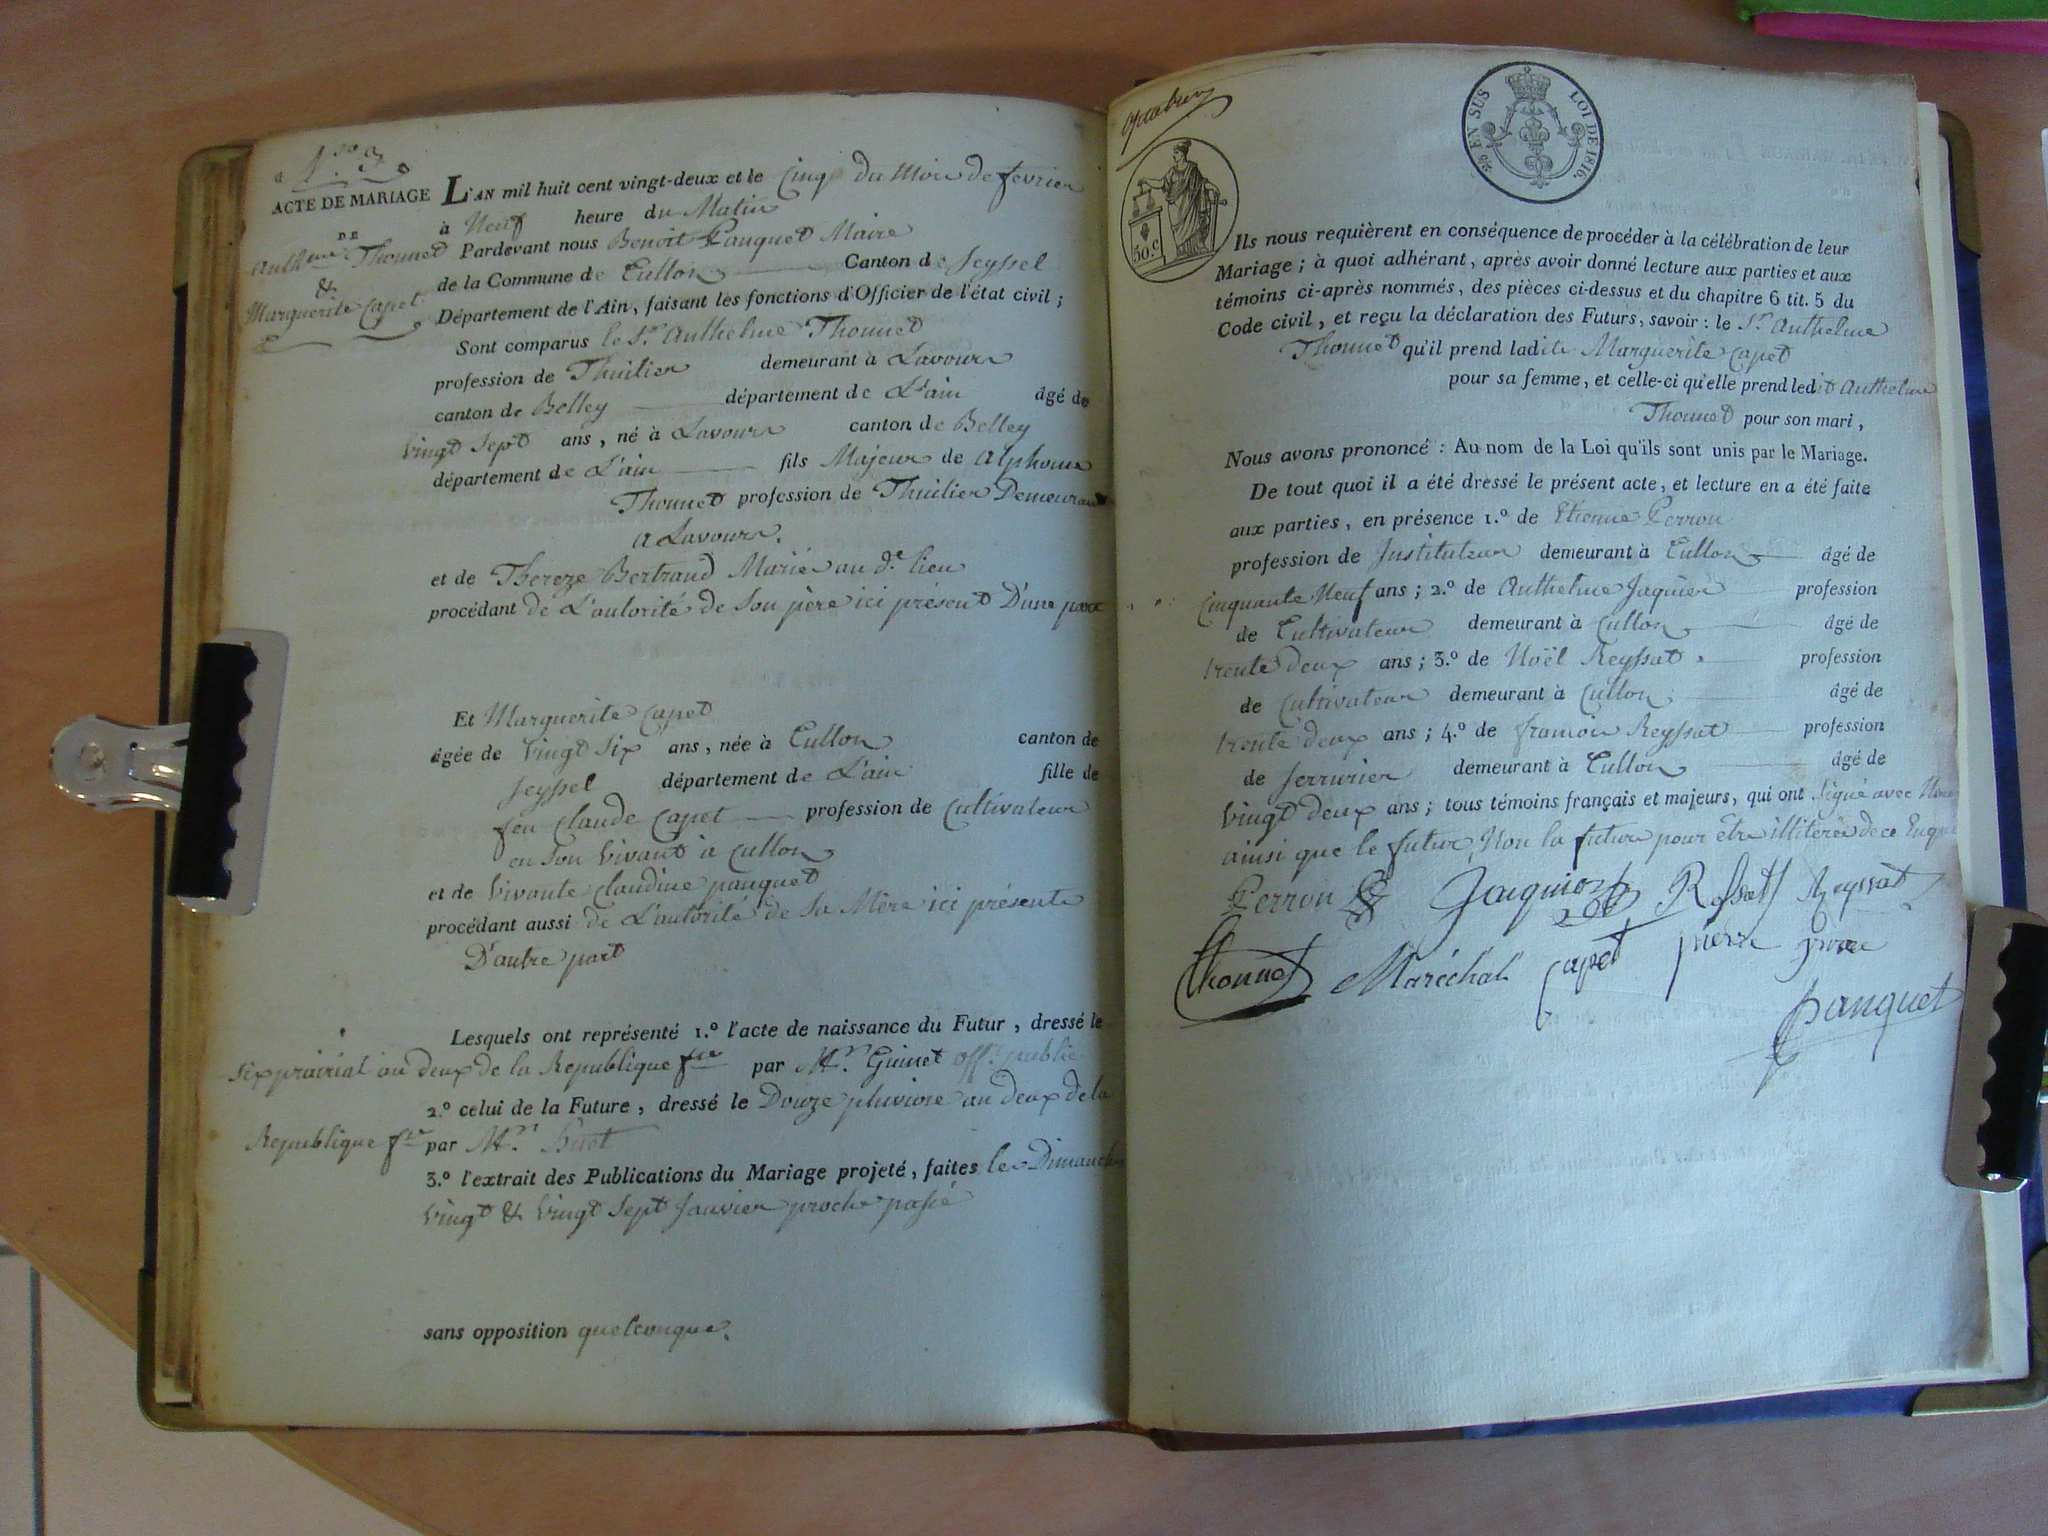 N.º 3
ACTE DE MARIAGE
DE
Anthme Thonnet
&
Marguerite Capet
L'AN mil huit cent vingt-deux et le Cinq du Mois de fevrier
à Neuf heure du Matin
Pardevant nous Benoit Panquet Maire
de la Commune de Cullon Canton de Seyssel
Département de l'Ain, faisant les fonctions d'Officier de l'état civil ;
Sont comparus le Sr. Anthelme Thonnet
profession de Thuilier demeurant à Lavours
canton de Belley département de L'ain âgé de
Vingt Sept ans, né à Lavours canton de Belley
département de L'ain fils Majeur de Alphonse
Thonnet profession de Thuilier Demeurant
a Lavours.
et de Thereze Bertrand Mariés au d.e lieu
procédant de L'autorité de Son père ici présent D'une part
Et Marguerite Capet
âgée de Vingt Six ans, née à Cullon canton de
Seyssel département de L'ain fille de
feu Claude Capet profession de Cultivateur
en Son Vivant à Cullon
et de Vivante Claudine panquet
procédant aussi de L'autorité de Sa Mère ici présente
D'autre part
Lesquels ont représenté 1.º l'acte de naissance du Futur, dressé le
Six prairial an deux de la Republique fse par Mr. Guinet off. public
2.º celui de la Future, dressé le Douze pluviose an deux de la
Republique fse par Mr.
3.º l'extrait des Publications du Mariage projeté, faites les Dimanches
Vingt & Vingt Sept Janvier proche passé
sans opposition quelconque.
50. c
EN SUS LOI DE 1816.
Ils nous requièrent en conséquence de procéder à la célébration de leur
Mariage ; à quoi adhérant, après avoir donné lecture aux parties et aux
témoins ci-après nommés, des pièces ci-dessus et du chapitre 6 tit. 5 du
Code civil, et reçu la déclaration des Futurs, savoir : le Sr. Anthelme
Thonnet qu'il prend ladite Marguerite Capet
pour sa femme, et celle-ci qu'elle prend ledit Anthelme
Thonnet pour son mari,
Nous avons prononcé : Au nom de la Loi qu'ils sont unis par le Mariage.
De tout quoi il a été dressé le présent acte, et lecture en a été faite
aux parties, en présence 1.º de Etienne Perron
profession de Instituteur demeurant à Cullon âgé de
Cinquante Neuf ans ; 2.º de Anthelme Jaquier profession
de Cultivateur demeurant à Cullon âgé de
trente deux ans ; 3.º de Noël Reyssat profession
de Cultivateur demeurant à Cullon âgé de
trente deux ans ; 4.º de francois Reyssat profession
de Serrurier demeurant à Cullon âgé de
Vingt deux ans ; tous témoins français et majeurs, qui ont Signé avec Nous
ainsi que le futur, Non la future pour être illiterée de ce Enquise
Perron Jaquier Reyssat
Thonnet Maréchal Capet pierre
panquet